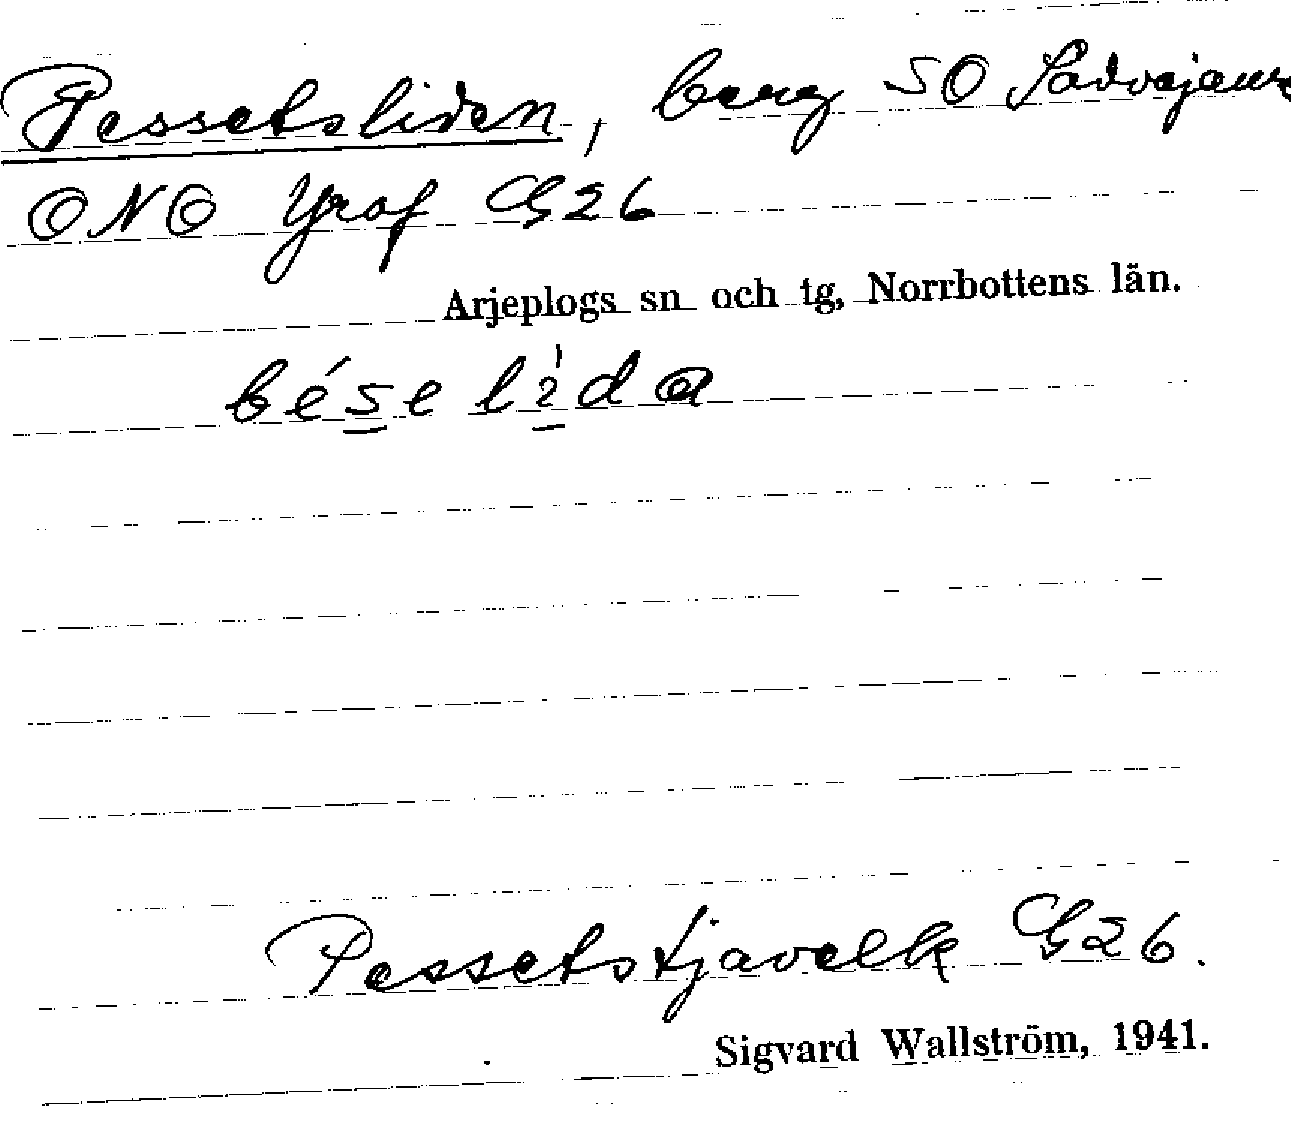 Pessetsliden, berg SO Sadvajaure
ONO Yraf G26
Arjeplogs sn och tg, Norrbottens län.
bése lìda
Pessetstjavelk G26.
Sigvard Wallström, 1941.